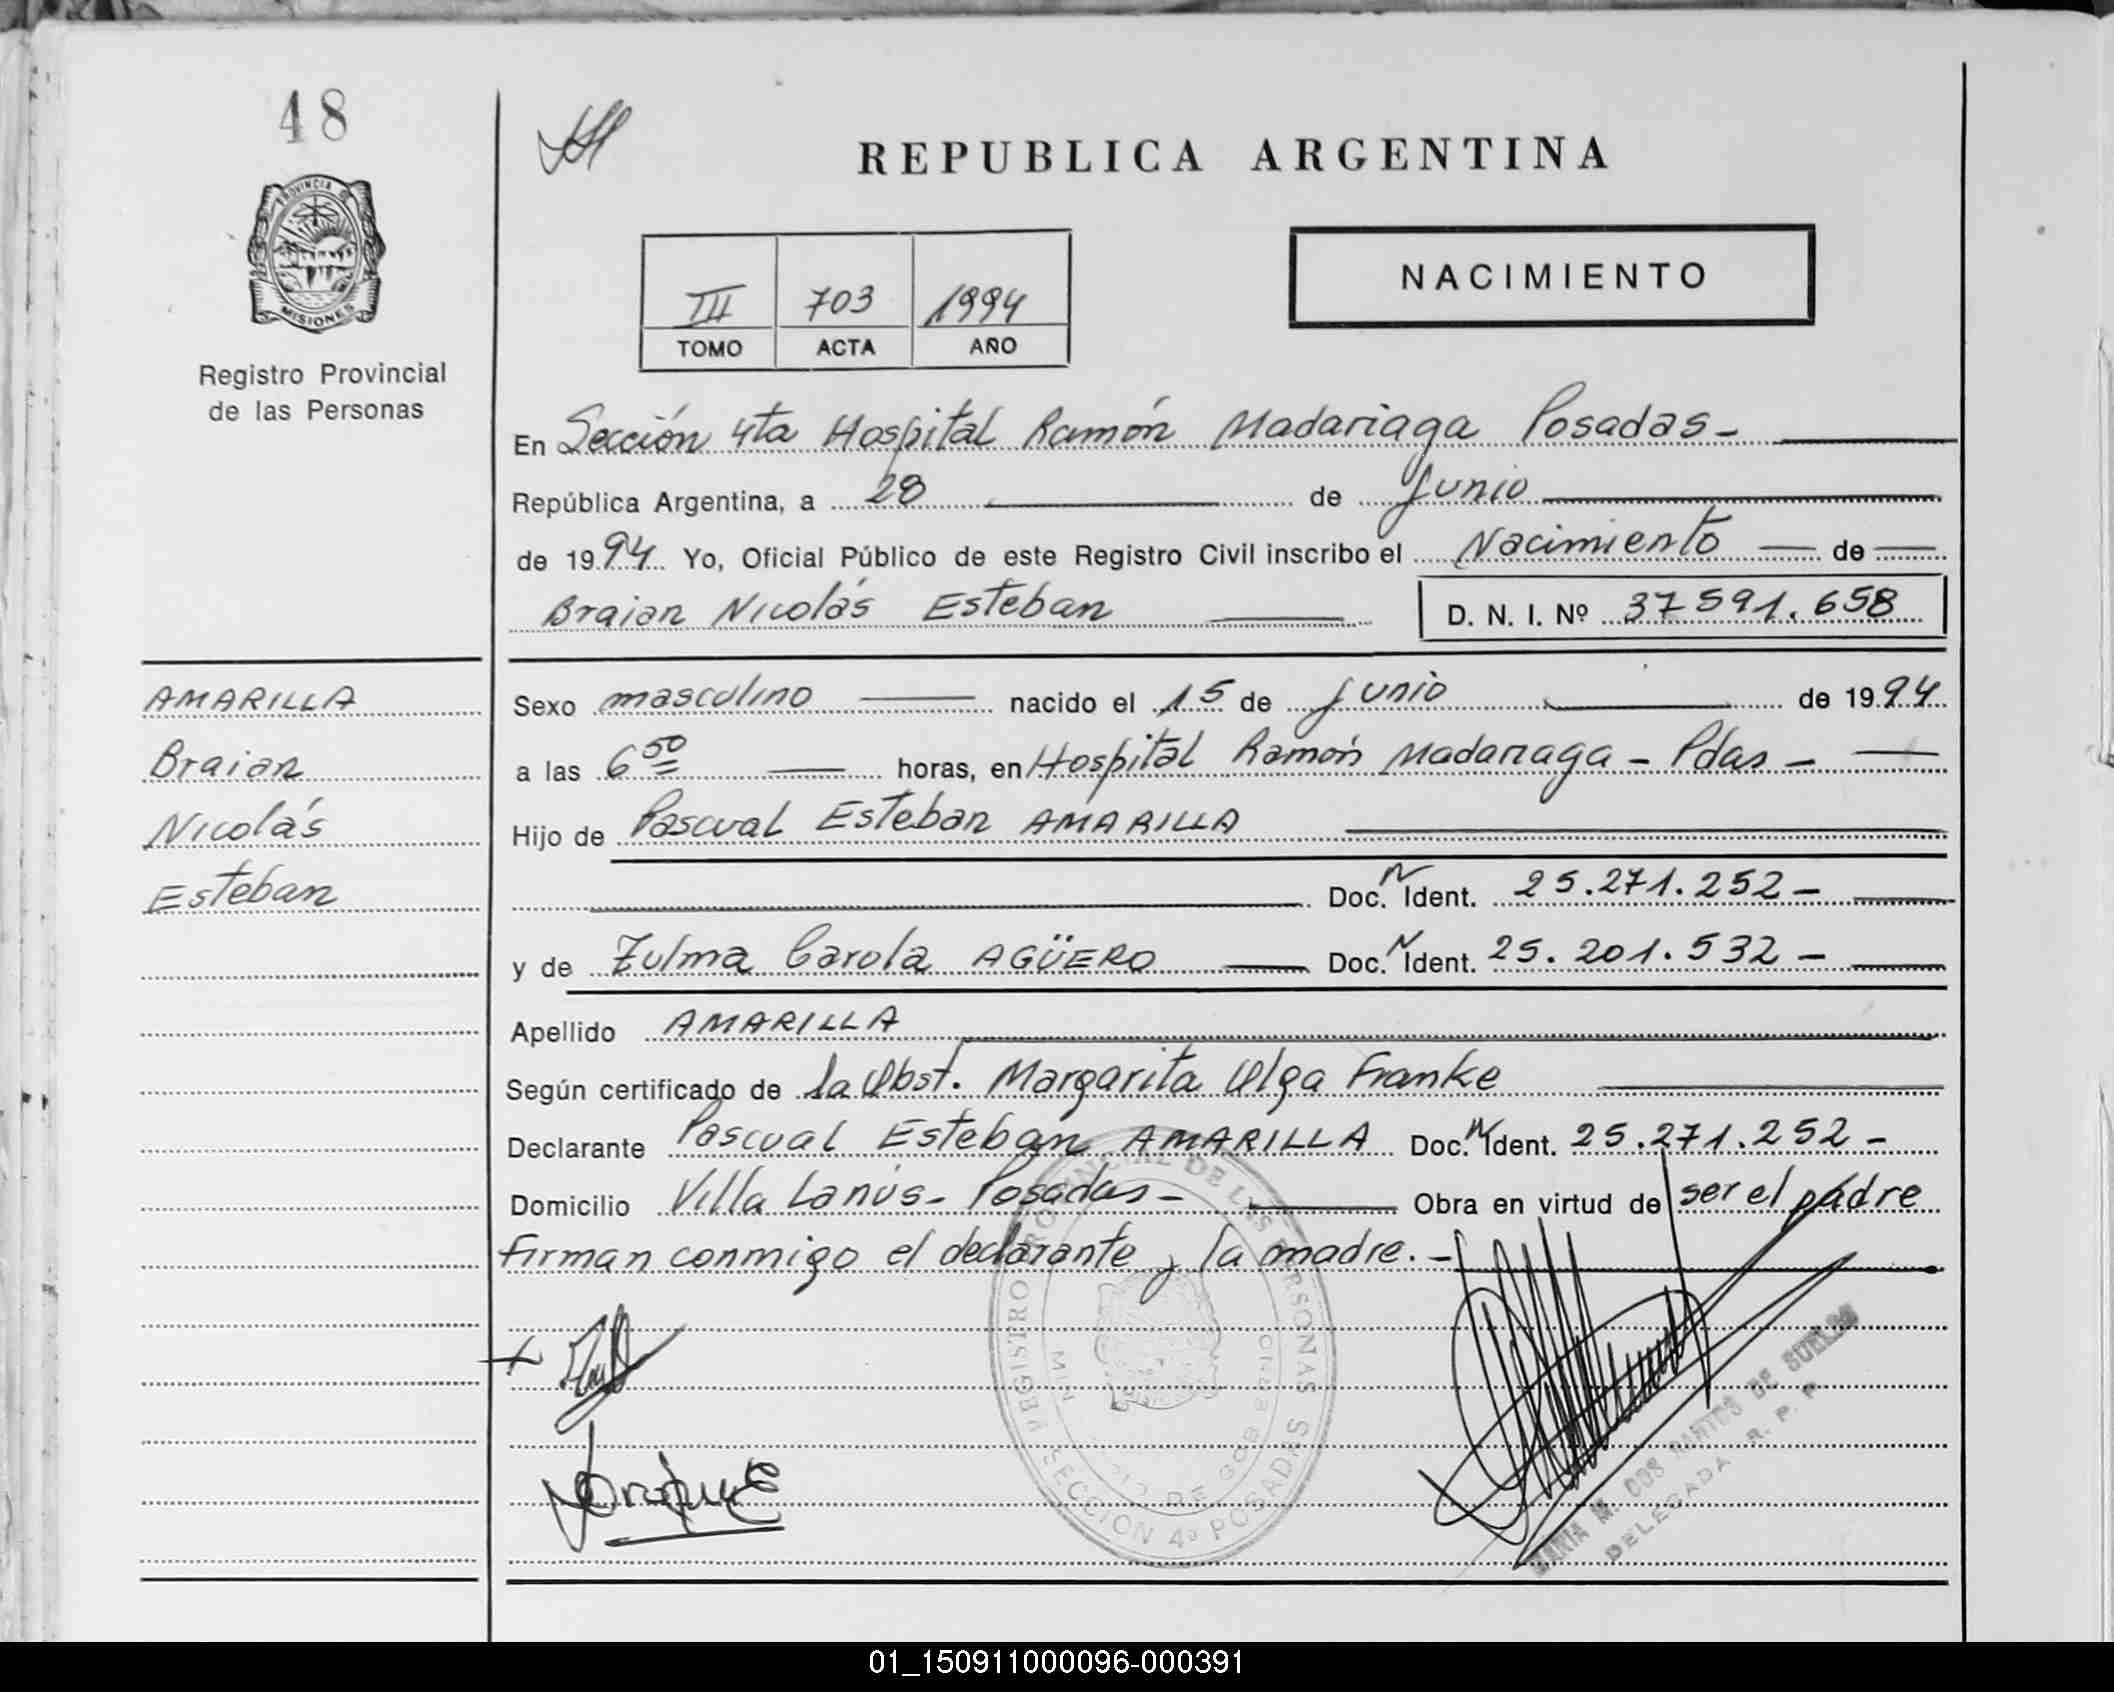 48
PROVINCIA DE
MISIONES
Registro Provincial
de las Personas
REPUBLICA ARGENTINA
NACIMIENTO
III 703 1994
TOMO ACTA AÑO
En Sección 4ta Hospital Ramón Madariaga Posadas-
República Argentina, a 28 de Junio
de 1994 Yo, Oficial Público de este Registro Civil inscribo el Nacimiento de
Braian Nicolás Esteban D. N. I. Nº 37591.658
AMARILLA
Braian
Nicolás
Esteban
Sexo masculino nacido el 15 de junio de 1994
a las 6 50 horas, en Hospital Ramón Madariaga - Pdas -
Hijo de Pascual Esteban AMARILLA
Doc. N Ident. 25.271.252-
y de Zulma Carola AGÜERO Doc. N Ident. 25.201.532-
Apellido AMARILLA
Según certificado de la Obst. Margarita Olga Franke
Declarante Pascual Esteban AMARILLA Doc. N Ident. 25.271.252-
Domicilio Villa Lanús- Posadas- Obra en virtud de ser el padre
Firman conmigo el declarante y la madre.-
REGISTRO PROVINCIAL DE LAS PERSONAS
SECCION 4ª POSADAS
MARIA M. DOS SANTOS DE
DELEGADA R. P. P.
01_150911000096-000391